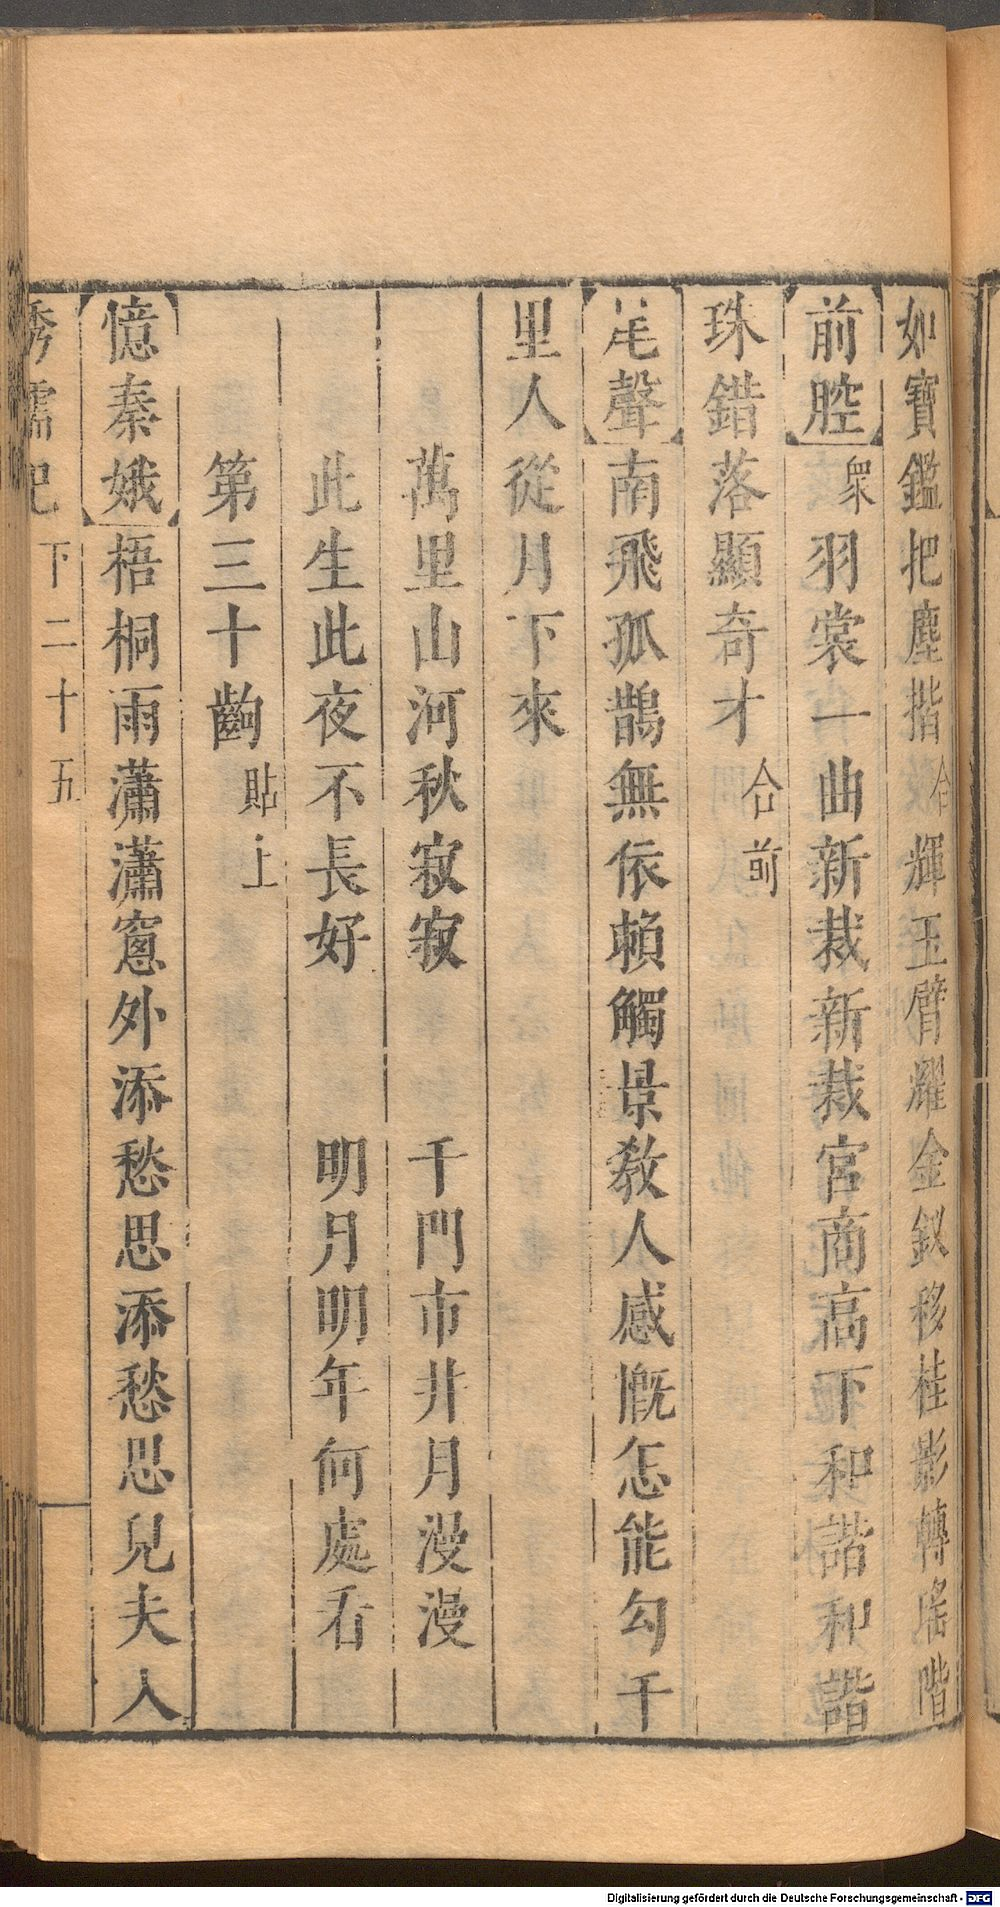 如寶鑑把塵揩合輝玉臂耀金釵移桂影轉瑤階
前腔衆羽裳一曲新裁新裁宮商高下和諧和諧
珠錯落顯奇才合前
尾聲南飛孤鵲無依賴觸景教人感慨怎能勾千
里人從月下來
萬里山河秋寂寂 千門市井月漫漫
此生此夜不長好 明月明年何處看
第三十齣貼上
憶秦娥梧桐雨瀟瀟窻外添愁思添愁思兒夫人
下二十五
Digitalisierung gefördert durch die Deutsche Forschungsgemeinschaft - DFG